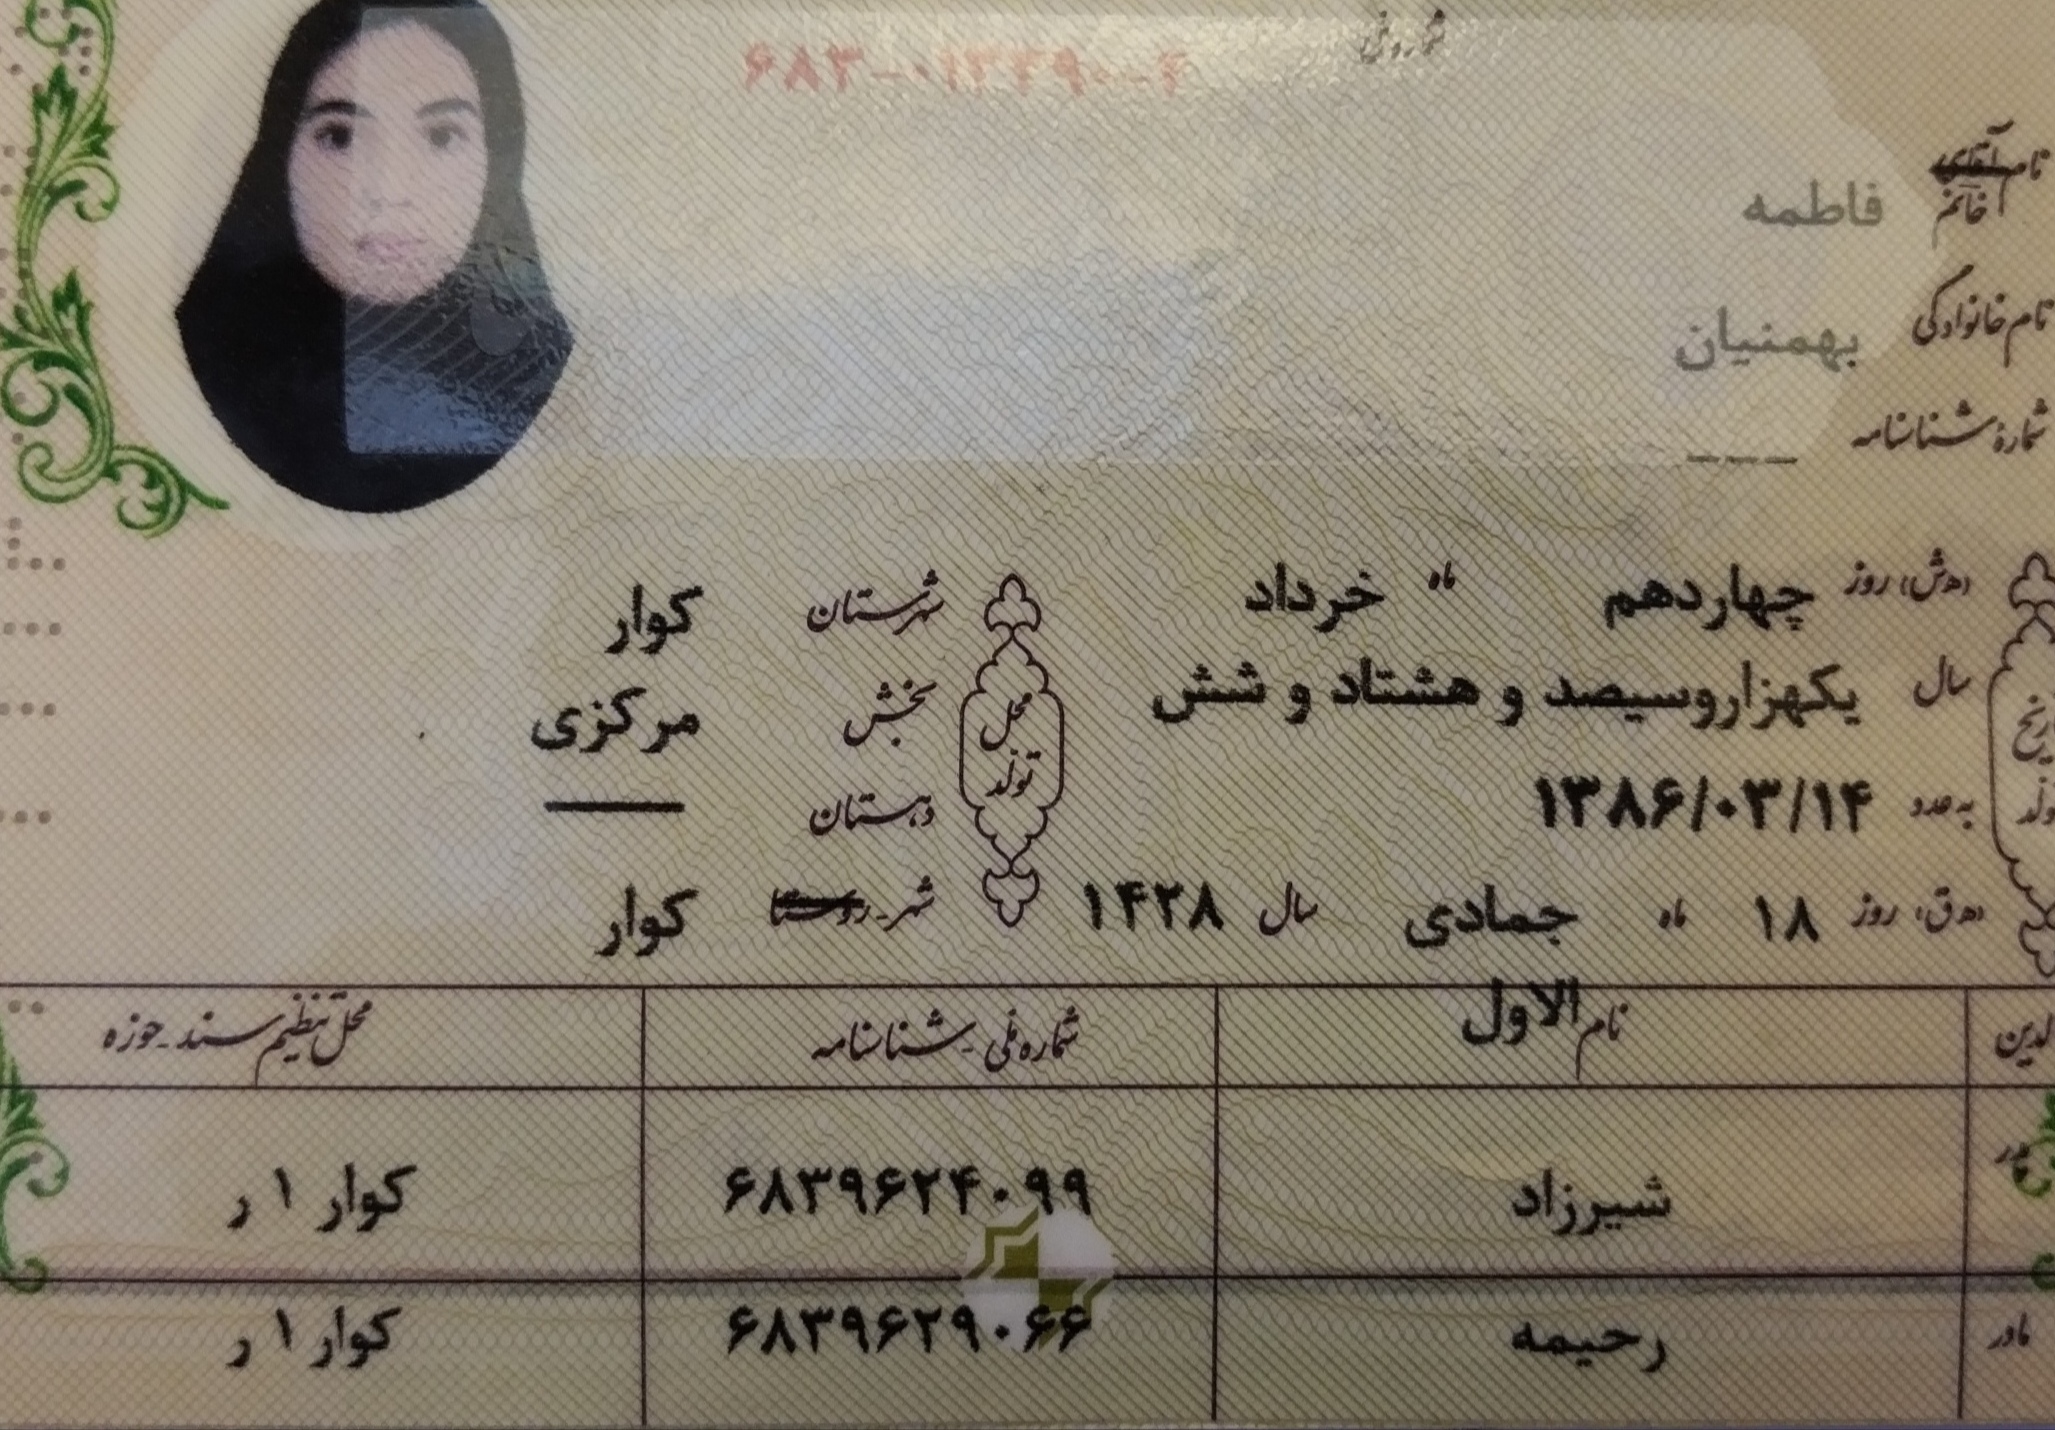 شماره ملی
۶۸۳-۰۱۳۴۹۰-۴
نام آقای
خانم فاطمه
نام خانوادگی بهمنیان
شمارهٔ شناسنامه ---
(ه‍.ش) روز چهاردهم ماه خرداد
سال یکهزاروسیصد و هشتاد و شش
به عدد ۱۳۸۶/۰۳/۱۴
(ه‍.ق) روز ۱۸ ماه جمادی الاول سال ۱۴۲۸
محل تولد
شهرستان کوار
بخش مرکزی
دهستان —
شهر-روستا کوار
نام شماره ملی-شناسنامه محل تنظیم سند-حوزه
شیرزاد ۶۸۳۹۶۲۴۰۹۹ کوار ۱ ر
مادر رحیمه ۶۸۳۹۶۲۹۰۶۶ کوار ۱ ر